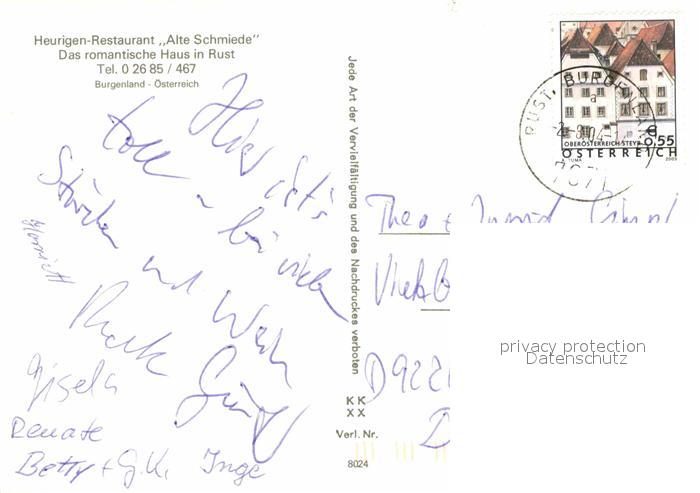 Heurigen-Restaurant „Alte Schmiede"
Das romantische Haus in Rust
Tel. 0 26 85 / 467
Burgenland - Österreich
Hier ist's
toll - bei vielen
Störchen und Wein
Gisela
Renate
Betty + G.K. Inge
Jede Art der Vervielfältigung und des Nachdruckes verboten
KK
XX
Verl. Nr.
8024
RUST, BURGENLA
a
7071
€
0,55
OBERÖSTERREICH-STEYR
ÖSTERREICH
A. TUMA 2003
Theo +
D 922
privacy protection
Datenschutz